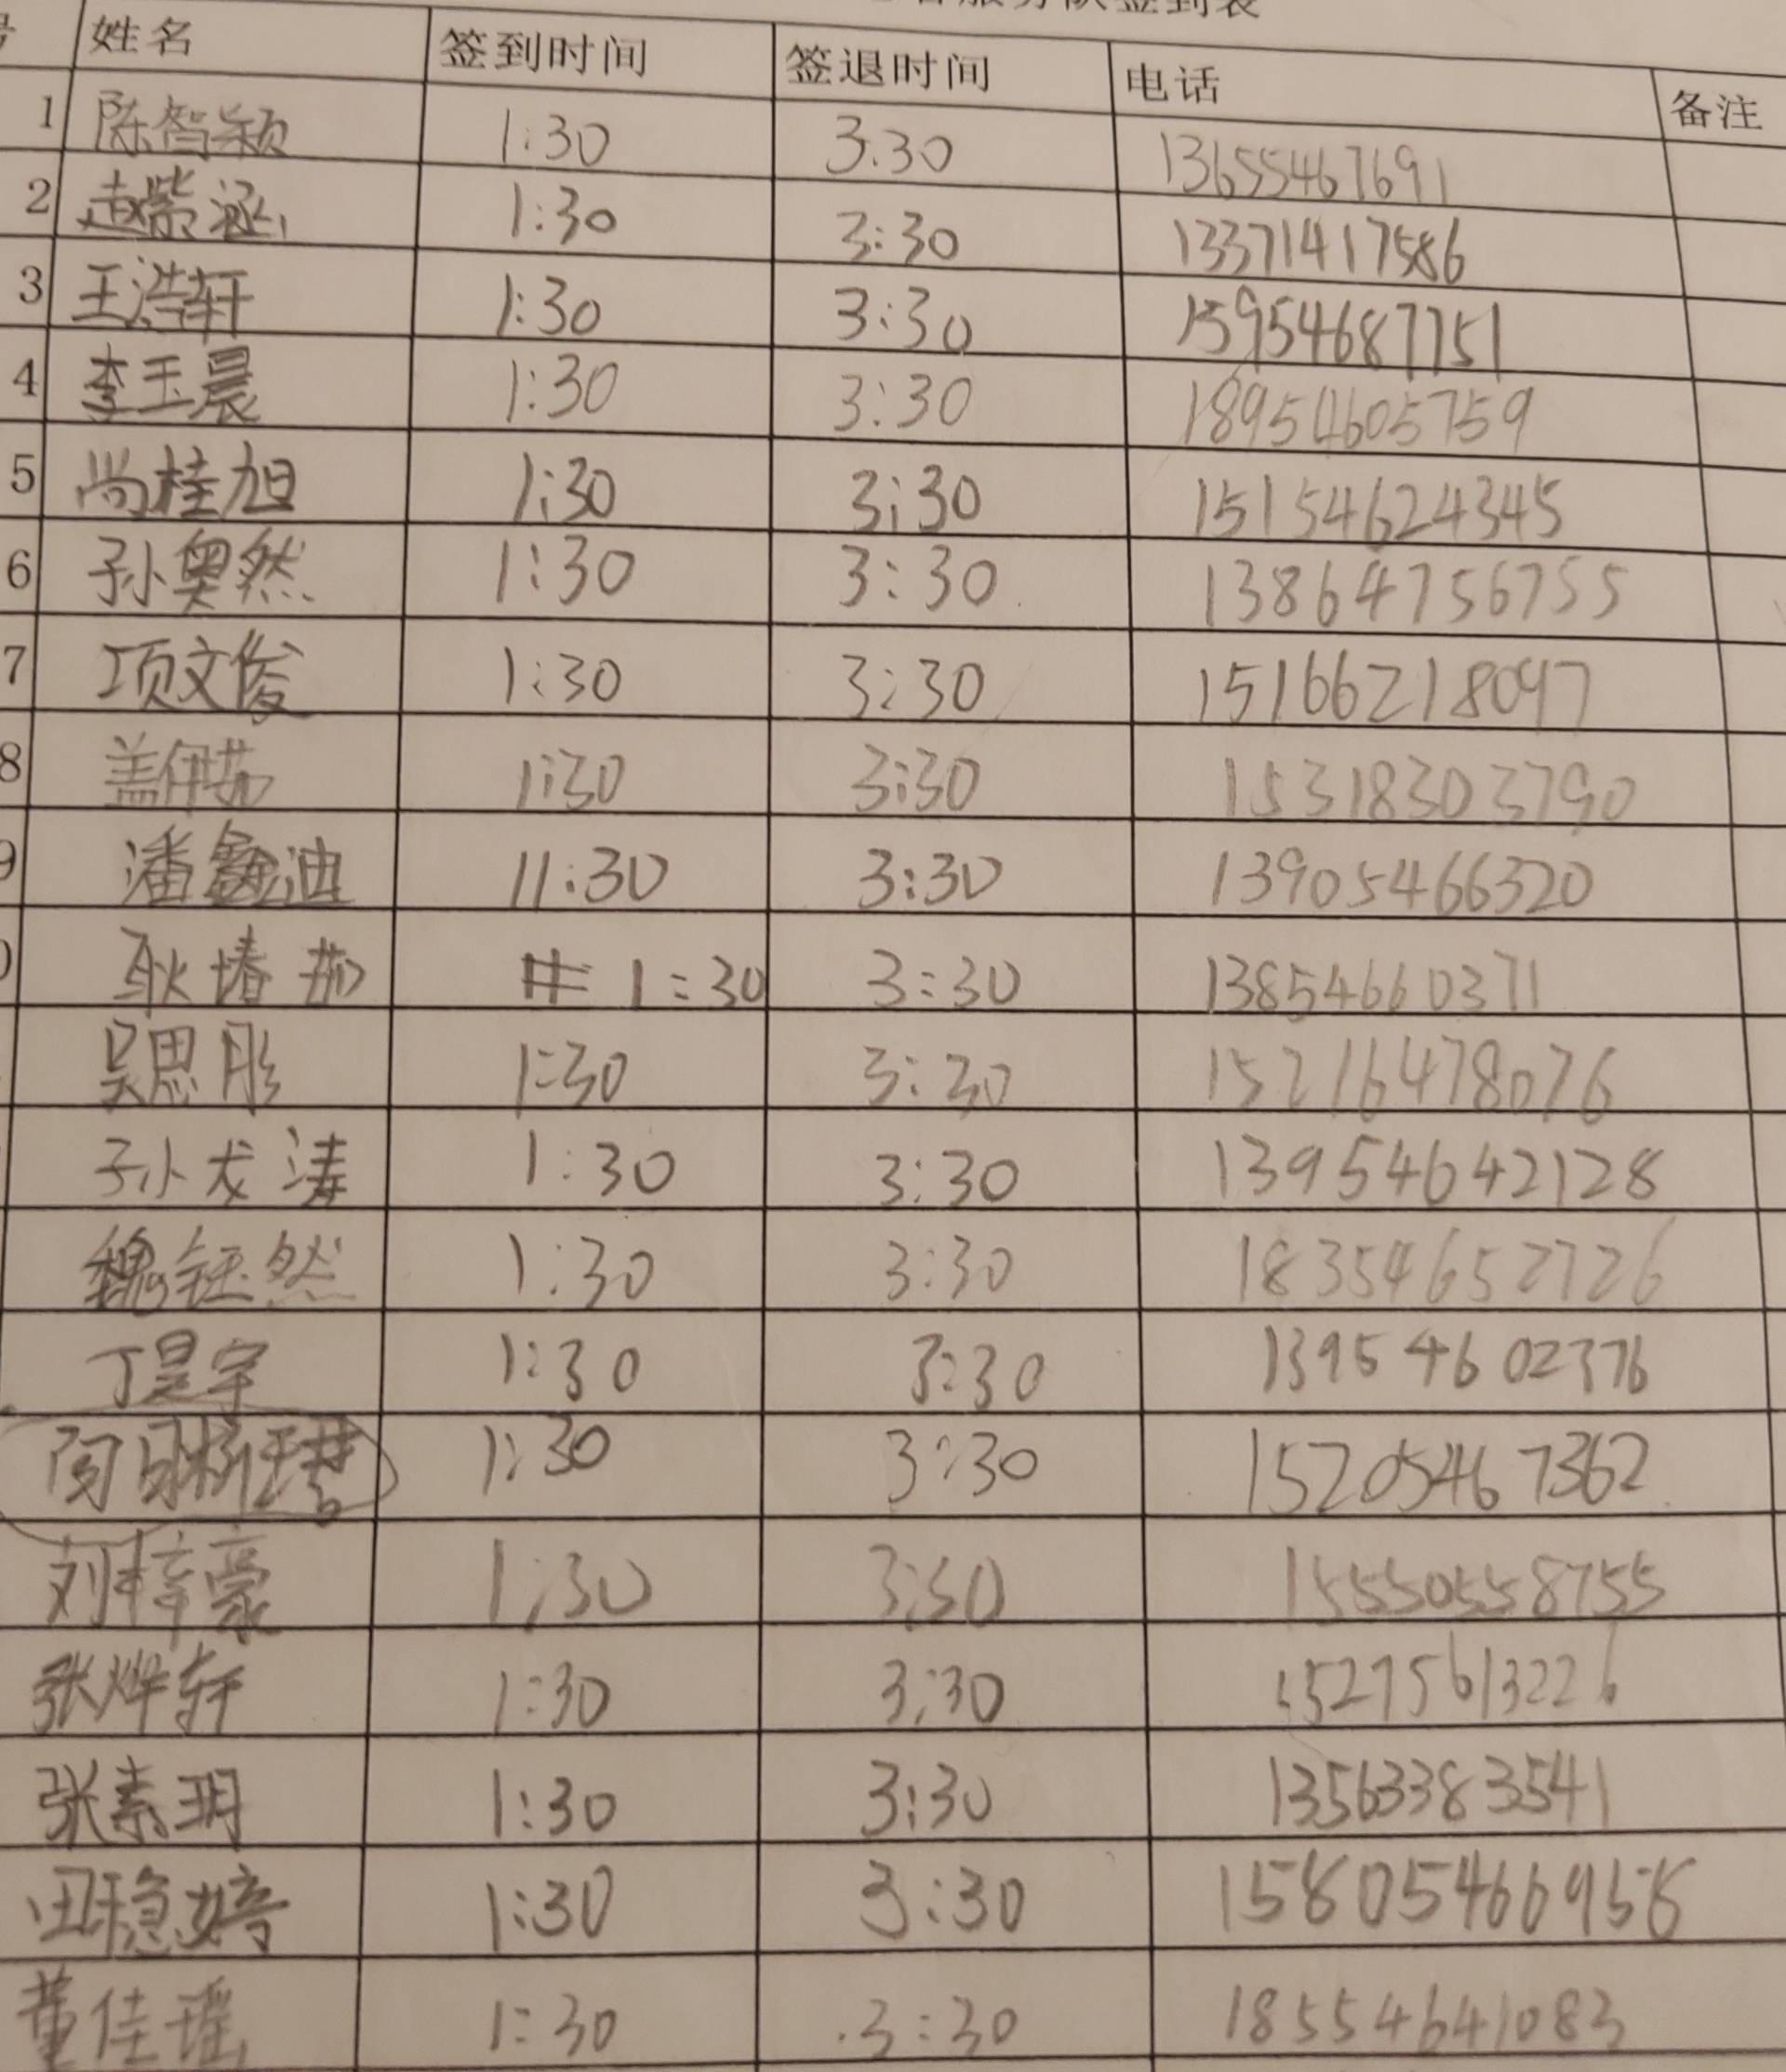 服务队签到表
号 姓名 签到时间 签退时间 电话 备注
1 陈智颖 1:30 3:30 13655467691
2 赵紫涵 1:30 3:30 13371417586
3 王浩轩 1:30 3:30 15954687751
4 李玉晨 1:30 3:30 18954605759
5 尚桂旭 1:30 3:30 15154624345
6 孙奥然 1:30 3:30 13864756755
7 项文俊 1:30 3:30 15166218097
8 盖伊茹 1:30 3:30 15318303790
9 潘鑫迪 11:30 3:30 13905466320
0 耿堉茹 1:30 3:30 13854660371
吴思彤 1:30 3:30 15216478076
孙龙涛 1:30 3:30 13954642128
魏钰然 1:30 3:30 18354652726
丁昊宇 1:30 3:30 13954602376
1:30 3:30 15205467362
刘梓豪 1:30 3:30 15550558755
张烨轩 1:30 3:30 15275613226
张素玥 1:30 3:30 13563383541
田稳婷 1:30 3:30 15805466958
董佳瑶 1:30 3:30 18554641083